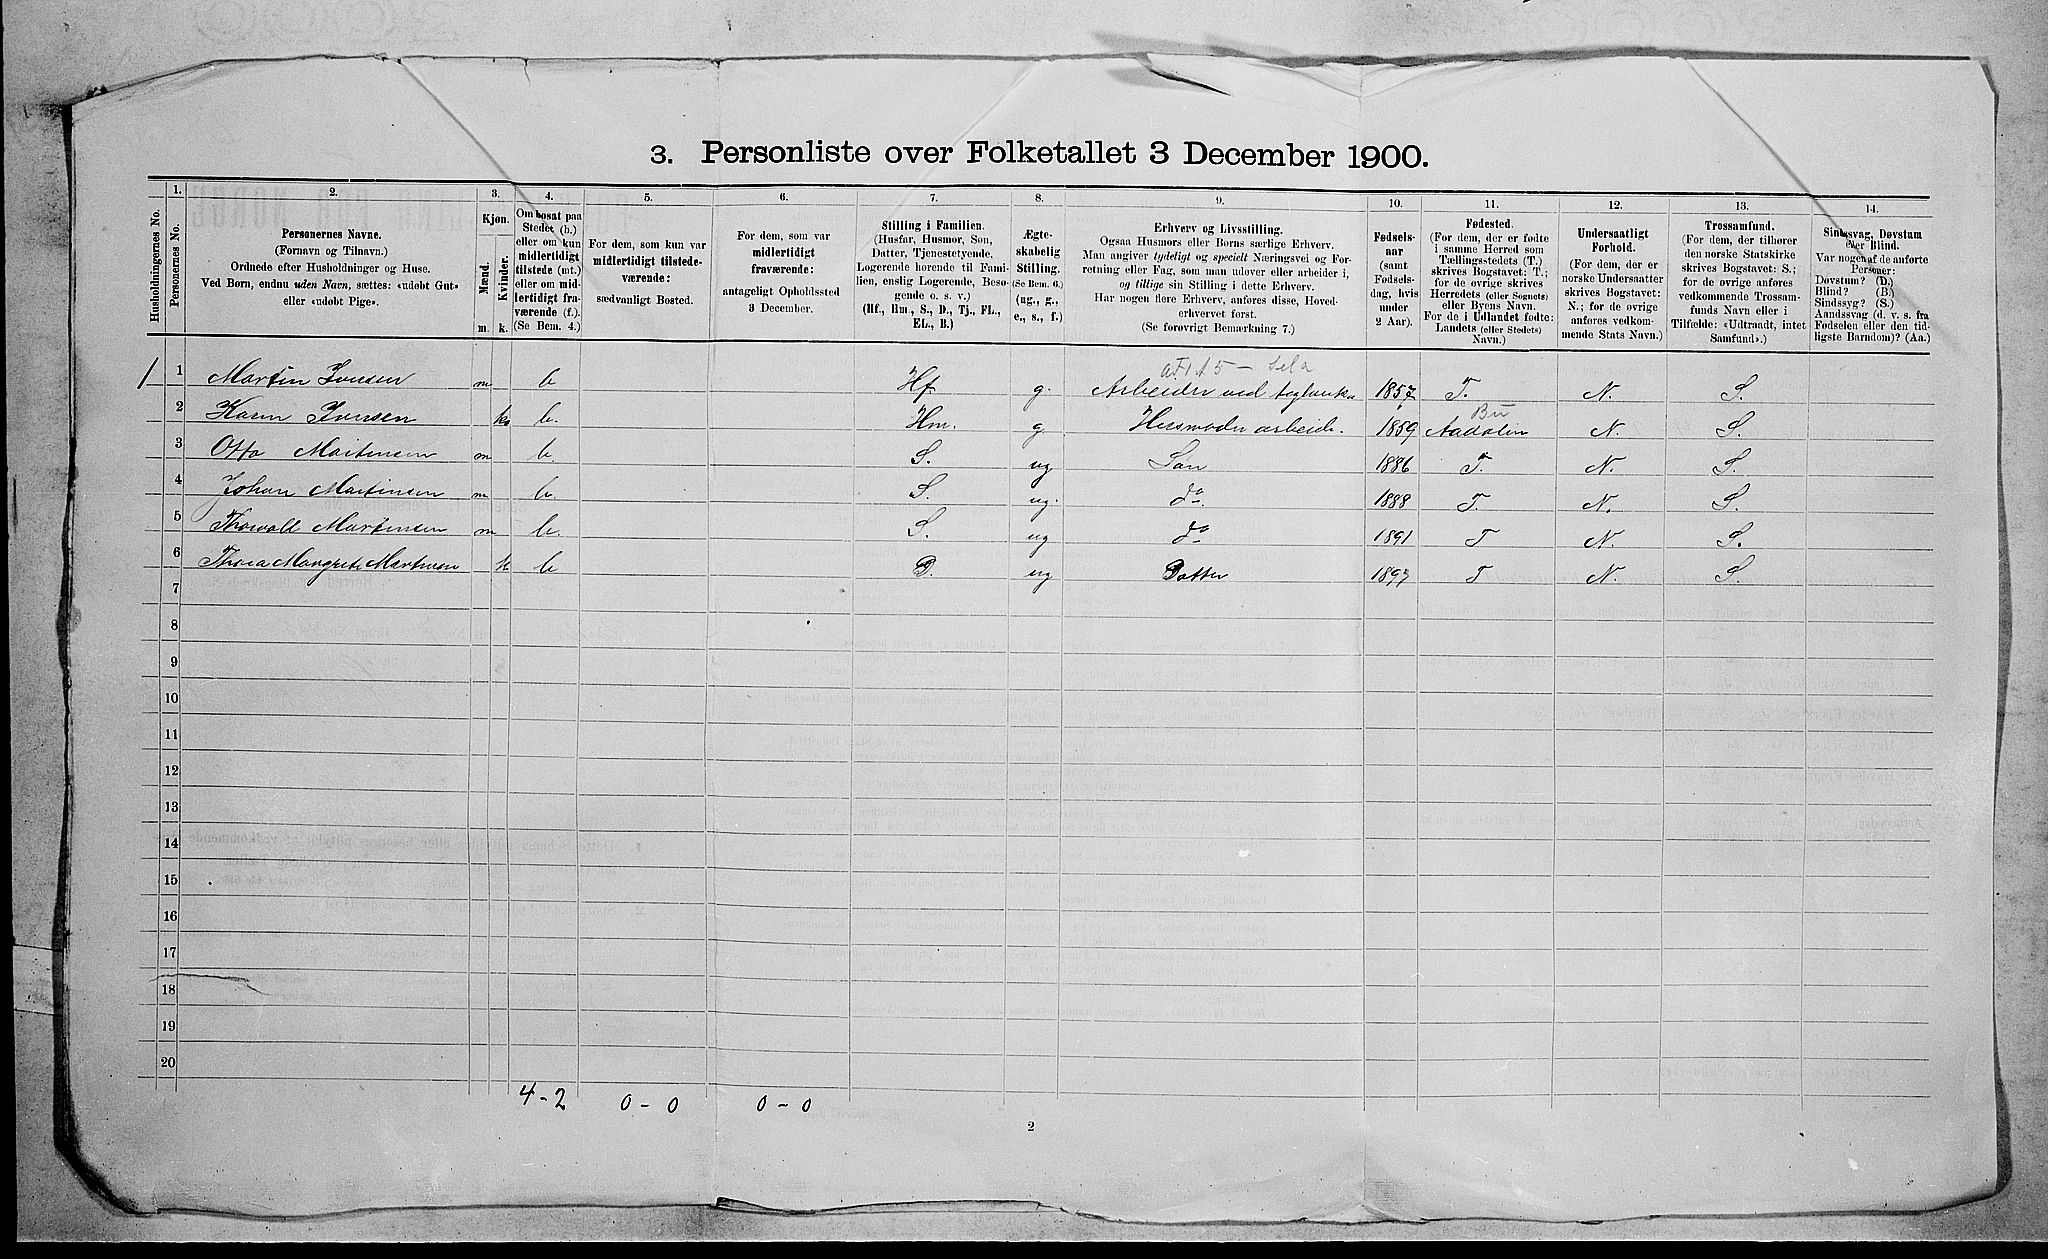 3. Personliste over Folketallet 3 December 1900.
Husholdningernes No.
1.
Personernes No.
2.
Personernes Navne.
(Fornavn og Tilnavn.)
Ordnede efter Husholdninger og Huse.
Ved Børn, endnu uden Navn, sættes: «udøbt Gut»
eller «udøbt Pige».
3.
Kjøn.
Mænd.
Kvinder.
m.
k.
4.
Om bosat paa
Stedet (b.)
eller om kun
midlertidigt
tilstede (mt.)
eller om mid-
lertidigt fra-
værende (f.).
(Se Bem. 4.)
5.
For dem, som kun var
midlertidigt tilstede-
værende:
sædvanligt Bosted.
6.
For dem, som var
midlertidigt
fraværende:
antageligt Opholdssted
3 December.
7.
Stilling i Familien.
(Husfar, Husmor, Søn,
Datter, Tjenestetyende,
Logerende hørende til Fami-
lien, enslig Logerende, Besø-
gende o. s. v.)
(Hf., Hm., S., D., Tj., FL.,
EL., B.)
8.
Ægte-
skabelig
Stilling.
(Se Bem. 6.)
(ug., g.,
e., s., f.)
9.
Erhverv og Livsstilling.
Ogsaa Husmors eller Børns særlige Erhverv.
Man angiver tydeligt og specielt Næringsvei og For-
retning eller Fag, som man udøver eller arbeider i,
og tillige sin Stilling i dette Erhverv.
Har nogen flere Erhverv, anføres disse, Hoved-
erhvervet først.
(Se forøvrigt Bemærkning 7.)
10.
Fødsels-
aar
(samt
Fødsels-
dag, hvis
under
2 Aar).
11.
Fødested.
(For dem, der er fødte
i samme Herred som
Tællingsstedets (T.)
skrives Bogstavet: T.;
for de øvrige skrives
Herredets (eller Sognets)
eller Byens Navn.
For de i Udlandet fødte:
Landets (eller Stedets)
Navn.)
12.
Undersaatligt
Forhold.
(For dem, der er
norske Undersaatter
skrives Bogstavet:
N.; for de øvrige
anføres vedkom-
mende Stats Navn.)
13.
Trossamfund.
(For dem, der tilhører
den norske Statskirke
skrives Bogstavet: S.;
for de øvrige anføres
vedkommende Trossam-
funds Navn eller i
Tilfælde: «Udtraadt, intet
Samfund».)
14.
Sindssvag, Døvstum
eller Blind.
Var nogen af de anførte
Personer:
Døvstum? (D.)
Blind? (B.)
Sindssyg? (S.)
Aandssvag (d. v. s. fra
Fødselen eller den tid-
ligste Barndom)? (Aa.)
1 Martin Iversen m b Hf g. Arbeider ved teglverk 1857 T. N. S.
Bu
2 Karen Iversen k b. Hm. g. Husmoder arbeide. 1859 Aadalen N. S.
3 Otto Martinsen m b. S. ug Søn 1886 T. N. S.
4 Johan Martinsen m b. S. ug. do 1888 T. N. S.
5 Thorvall Martinsen m b. S. ug do 1891 T N. S.
6 Thora Margrete Martinsen k b D. ug Datter 1897 T N. S.
7
8
9
10
11
12
13
14
15
16
17
18
19
20
4-2 0-0 0-0
2